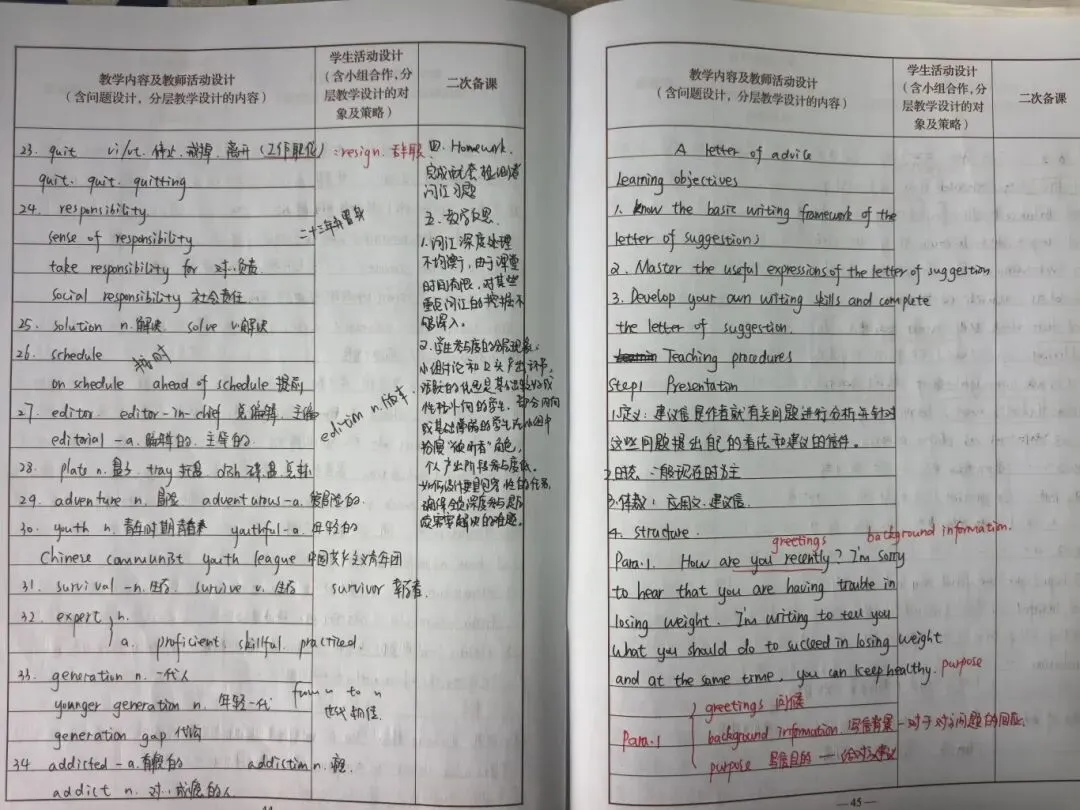 教学内容及教师活动设计
（含问题设计，分层教学设计的内容）
学生活动设计
（含小组合作，分
层教学设计的对
象及策略）
二次备课
23. quit vi/vt. 停止.戒掉.离开（工作职位）: resign. 辞职
quit. quit. quitting
24. responsibility
sense of responsibility
take responsibility for 对..负责
social responsibility 社会责任
25. solution n.解决 solve v.解决
26. schedule
按时
on schedule ahead of schedule 提前
27. editor. editor-in-chief 总编辑、主编
edition n.版本.
editorial -a.编辑的.主导的.
28. plate n.盘子 tray 托盘 dish 碟盘
29. adventure n.冒险 adventurous-a.爱冒险的.
30. youth n.青年时期 青春 youthful-a.年轻的
Chinese communist youth league 中国共产主义青年团
31. survival -n.生存. survive v.生存 survivor 幸存者.
32. expert n.
a. proficient skillful practiced.
33. generation n.一代人
younger generation n. 年轻一代
from n to n
世代相传.
generation gap 代沟
34 addicted -a.有瘾的 addiction n.瘾
addict n. 对..成瘾的人
四. Homework.
完成
词汇习题
五. 教学反思.
1.词汇深度处理
不均衡，由于课堂
时间有限，对某些
重点词汇的挖掘不
够深入。
2.学生参与度的分层现象:
小组讨论和 产出环节，
活跃的总是基础较好或
性格外向的学生，部分内向
或基础薄弱的学生在小组中
扮演"倾听者"角色，
个人产出阶段参与度低。
如何设计更具包容性的任务
确保全员深度参与是
亟需解决的难题。
44
教学内容及教师活动设计
（含问题设计，分层教学设计的内容）
学生活动设计
（含小组合作，分
层教学设计的对
象及策略）
二次备课
A letter of advice
Learning objectives
1. Know the basic writing framework of the
letter of suggestions
2. Master the useful expressions of the letter of suggestion
3. Develop your own writing skills and complete
the letter of suggestion.
Teaching procedures
Step1 Presentation
1.定义: 建议信是作者就有关问题进行分析并针对
这些问题提出自己的看法和建议的信件。
2.时态: 一般现在时为主
3.体裁: 应用文.建议信.
4. structure.
greetings background information.
Para.1. How are you recently? I'm sorry
to hear that you are having trouble in
losing weight. I'm writing to tell you
what you should do to succeed in losing weight
and at the same time, you can keep healthy. purpose
greetings 问候
Para.1 background information 写信背景 - 对于对方问题的回应.
purpose 写信目的 — 给对方建议
—45—